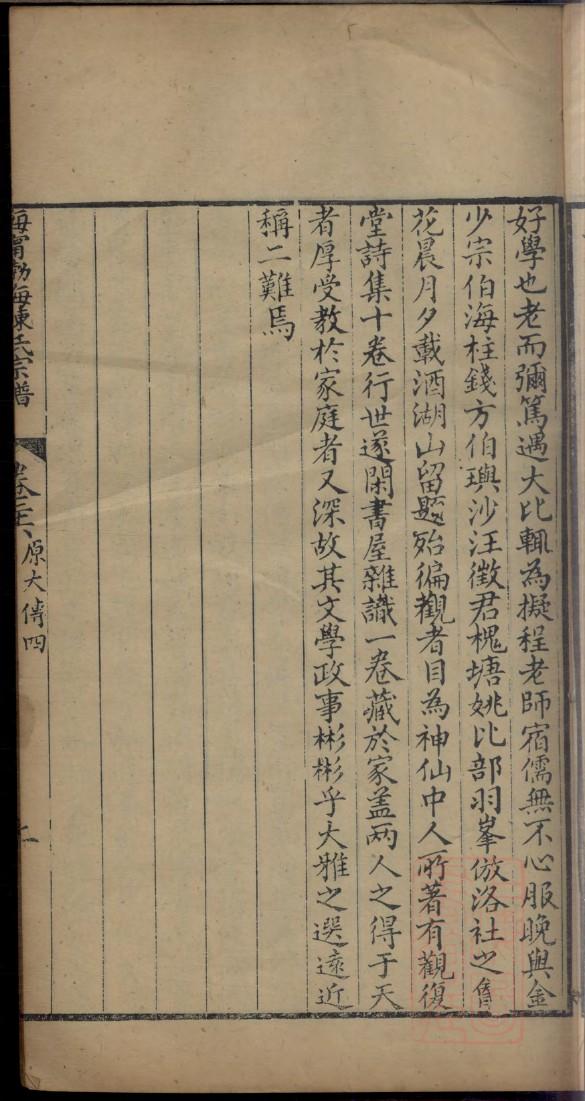 好學也老而彌篤遇大比輒為擬程老師宿儒無不心服晚與金
少宗伯海柱錢方伯璵沙汪徵君槐塘姚比部羽峯倣洛社之會
花晨月夕載酒湖山留題殆徧觀者目為神仙中人所著有觀復
堂詩集十卷行世遂閑書屋雜識一卷藏於家蓋兩人之得于天
者厚受教於家庭者又深故其文學政事彬彬乎大雅之選遠近
稱二難焉
海寧渤海陳氏宗譜
原大傳四